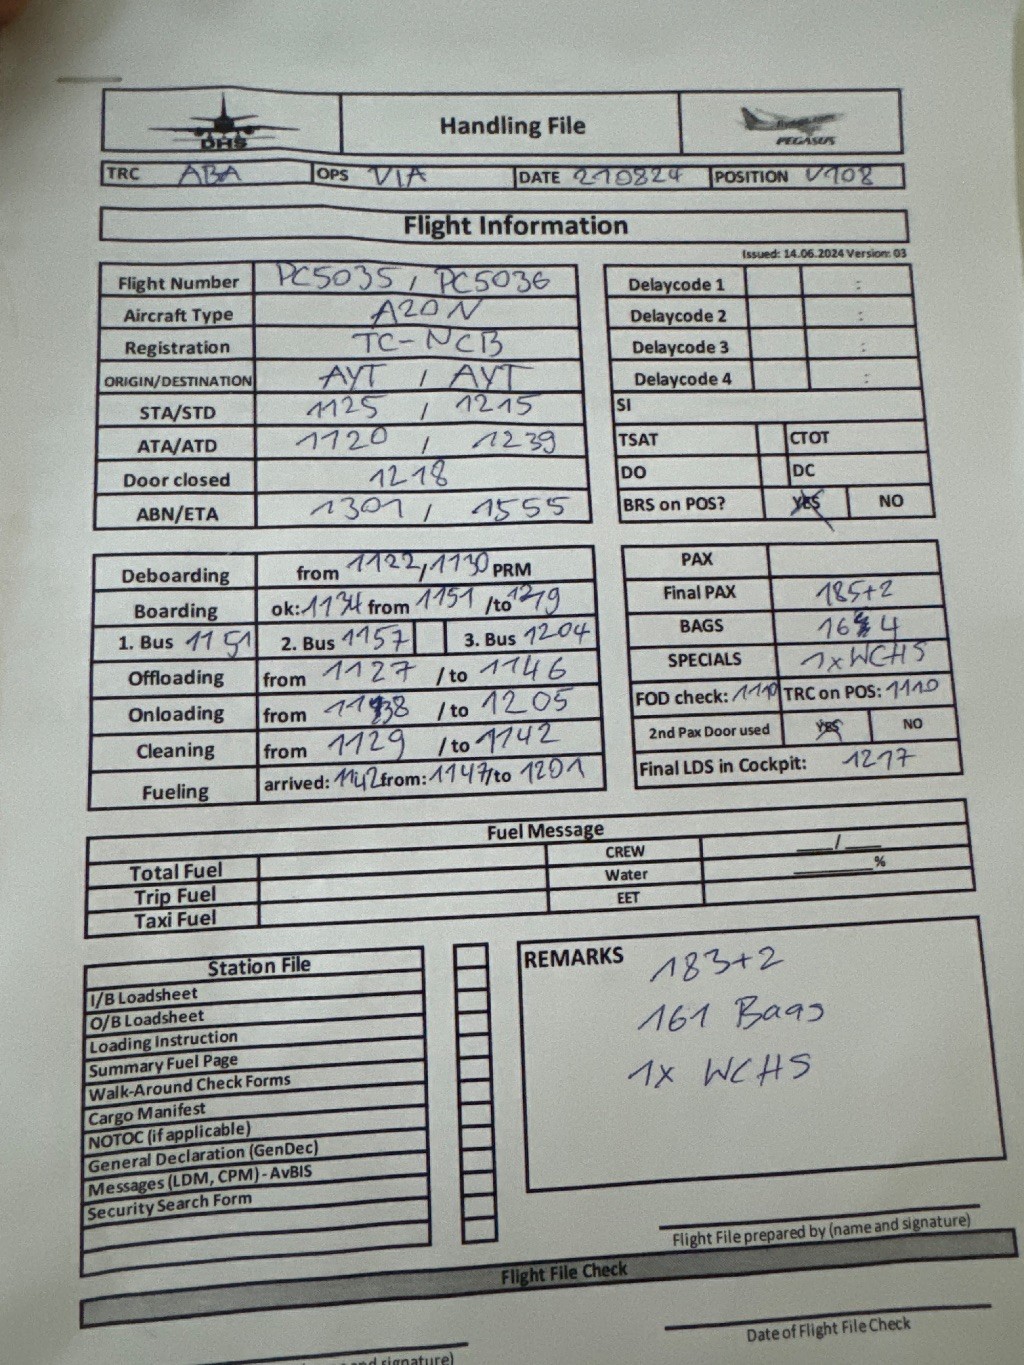 DHS
Handling File
PEGASUS
TRC ABA OPS VIA DATE 210824 POSITION V108
Flight Information
Issued: 14.06.2024 Version: 03
Flight Number PC5035 / PC5036
Aircraft Type A20N
Registration TC-NCB
ORIGIN/DESTINATION AYT / AYT
STA/STD 1125 / 1215
ATA/ATD 1120 / 1239
Door closed 1218
ABN/ETA 1301 / 1555
Delaycode 1 :
Delaycode 2 :
Delaycode 3 :
Delaycode 4 :
SI
TSAT CTOT
DO DC
BRS on POS? YES NO
Deboarding from 1122/1130 PRM
Boarding ok: 1134 from 1151 /to 1219
1. Bus 1151 2. Bus 1157 3. Bus 1204
Offloading from 1127 /to 1146
Onloading from 1138 /to 1205
Cleaning from 1129 /to 1142
Fueling arrived: 1142 from: 1147 /to 1201
PAX
Final PAX 185+2
BAGS 164
SPECIALS 1x WCHS
FOD check: 1110 TRC on POS: 1110
2nd Pax Door used YES NO
Final LDS in Cockpit: 1217
Fuel Message
Total Fuel CREW ___/___
Trip Fuel Water ______%
Taxi Fuel EET
Station File
I/B Loadsheet
O/B Loadsheet
Loading Instruction
Summary Fuel Page
Walk-Around Check Forms
Cargo Manifest
NOTOC (if applicable)
General Declaration (GenDec)
Messages (LDM, CPM) - AvBIS
Security Search Form
REMARKS 183+2
161 Bags
1x WCHS
Flight File prepared by (name and signature)
Flight File Check
Date of Flight File Check
and signature)